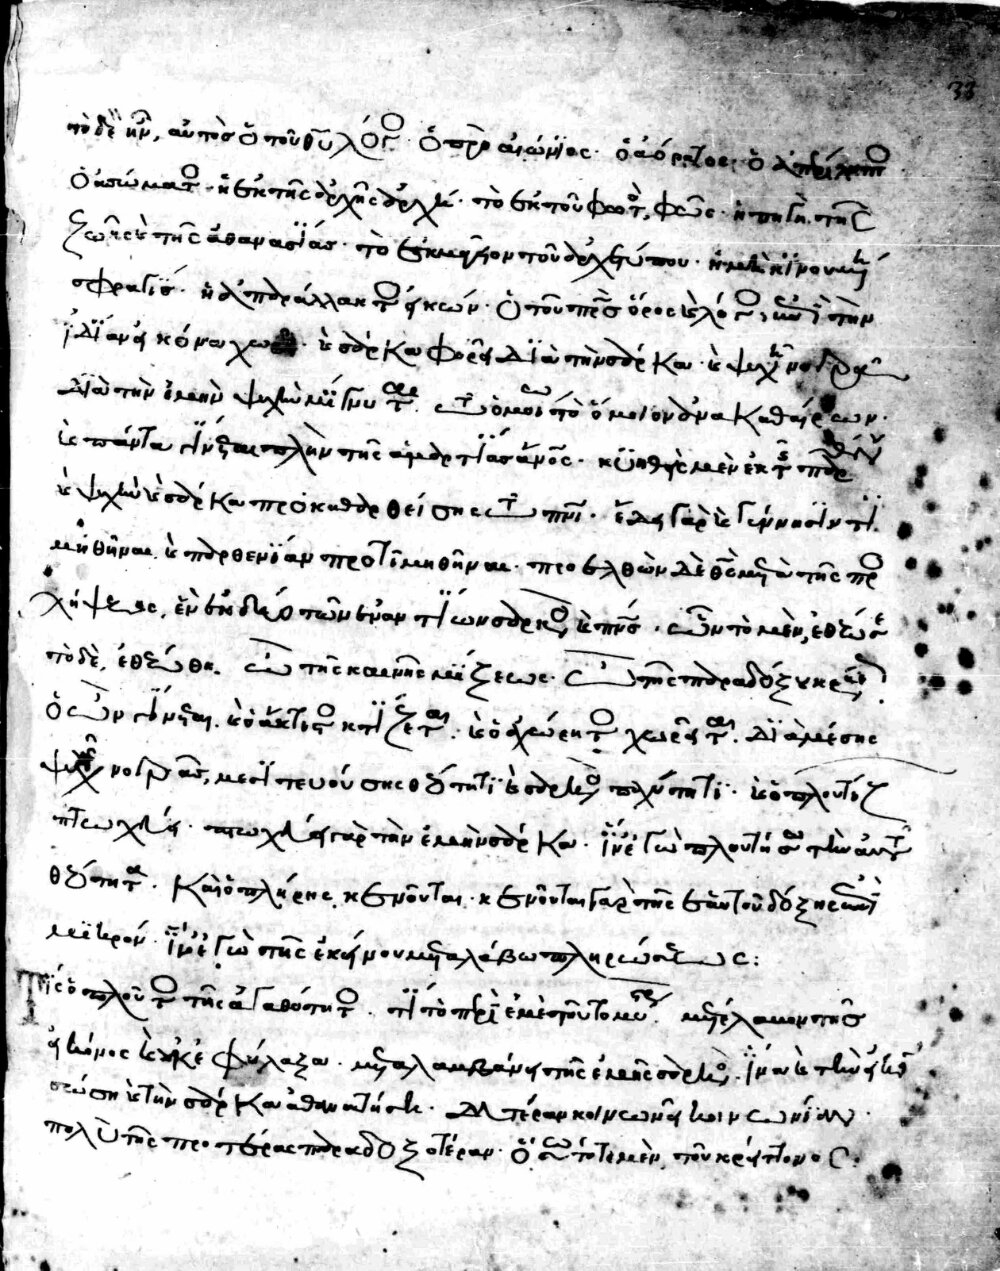 τὸ δὲ ἦν, αὐτὸς ὁ τοῦ θῦ λόγος· ὁ προαιώνιος· ὁ ἀόρατος· ὁ ἀπερίληπτος·
ὁ ἀσώματος· ἡ ἐκ τῆς ἀρχῆς ἀρχή· τὸ ἐκ τοῦ φωτὸς, φῶς· ἡ πηγὴ τῆς
ζωῆς καὶ τῆς ἀθανασίας· τὸ ἐκμαγεῖον τοῦ ἀρχετύπου· ἡ μὴ κινουμένη
σφραγίς· ἡ ἀπαράλλακτος εἰκών· ὁ τοῦ πρς ὅρος καὶ λόγος, ἐπὶ τὴν
ἰδίαν εἰκόνα χωρεῖ· καὶ σάρκα φορεῖ διὰ τὴν σάρκα· καὶ ψυχῇ νοερᾷ
διὰ τὴν ἐμὴν ψυχὴν μίγνυται· τῷ ὁμοίῳ τὸ ὅμοιον ἀνακαθαίρων·
καὶ πάντα γίνεται πλὴν τῆς ἁμαρτίας ἄνος· κυηθεὶς μὲν ἐκ τῆς παρθένου
καὶ ψυχὴν καὶ σάρκα προκαθαρθείσης τῷ πνι· ἔδει γὰρ καὶ γέννησιν τι
μηθῆναι καὶ παρθενίαν προτιμηθῆναι· προελθὼν δὲ θς μετὰ τῆς προσ
λήψεως, ἓν ἐκ δύο τῶν ἐναντίων σαρκὸς καὶ πνς· ὧν τὸ μὲν, ἐθέωσε
τὸ δὲ, ἐθεώθη. ὢ τῆς καινῆς μίξεως· ὢ τῆς παραδόξου κράσεως·
ὁ ὢν γίνεται. καὶ ὁ ἄκτιστος κτίζεται· καὶ ὁ ἀχώρητος χωρεῖται. διὰ μέσης
ψυχῆς νοερᾶς, μεσιτευούσης θεότητι καὶ σαρκὸς παχύτητι· καὶ ὁ πλουτίζων
πτωχεύει· πτωχεύει γὰρ τὴν ἐμὴν σάρκα· ἵν' ἐγὼ πλουτήσω τὴν αὐτοῦ
θεότητα. καὶ ὁ πλήρης, κενοῦται· κενοῦται γὰρ τῆς ἑαυτοῦ δόξης ἐπὶ
μικρόν· ἵν' ἐγὼ τῆς ἐκείνου μεταλάβω πληρώσεως:
Τίς ὁ πλοῦτος τῆς ἀγαθότητος· τί τὸ περὶ ἐμὲ τοῦτο μυστήριον· μετέλαβον τῆς
εἰκόνος καὶ οὐκ ἐφύλαξα· μεταλαμβάνει τῆς ἐμῆς σαρκὸς, ἵνα καὶ τὴν εἰκόνα
σώσῃ καὶ τὴν σάρκα ἀθανατίσῃ. δευτέραν κοινωνεῖ κοινωνίαν·
πολὺ τῆς προτέρας παραδοξοτέραν· ὅσῳ τότε μὲν τοῦ κρείττονος: